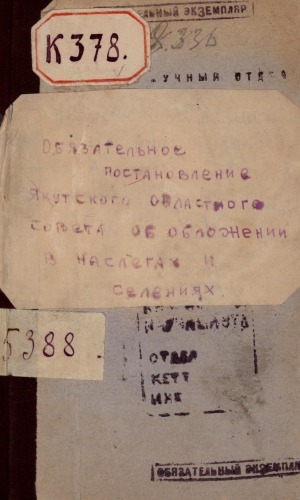 ОБЯЗАТЕЛЬНЫЙ ЭКЗЕМПЛЯР
К 378.
336
УЧНЫЙ ОТДЕ
Обязательное
постановление
Якутского областного
совета об обложении
в наслегах и
селениях.
5388.
ОТДЕЛ
ОБЯЗАТЕЛЬНЫЙ ЭКЗЕМПЛЯ